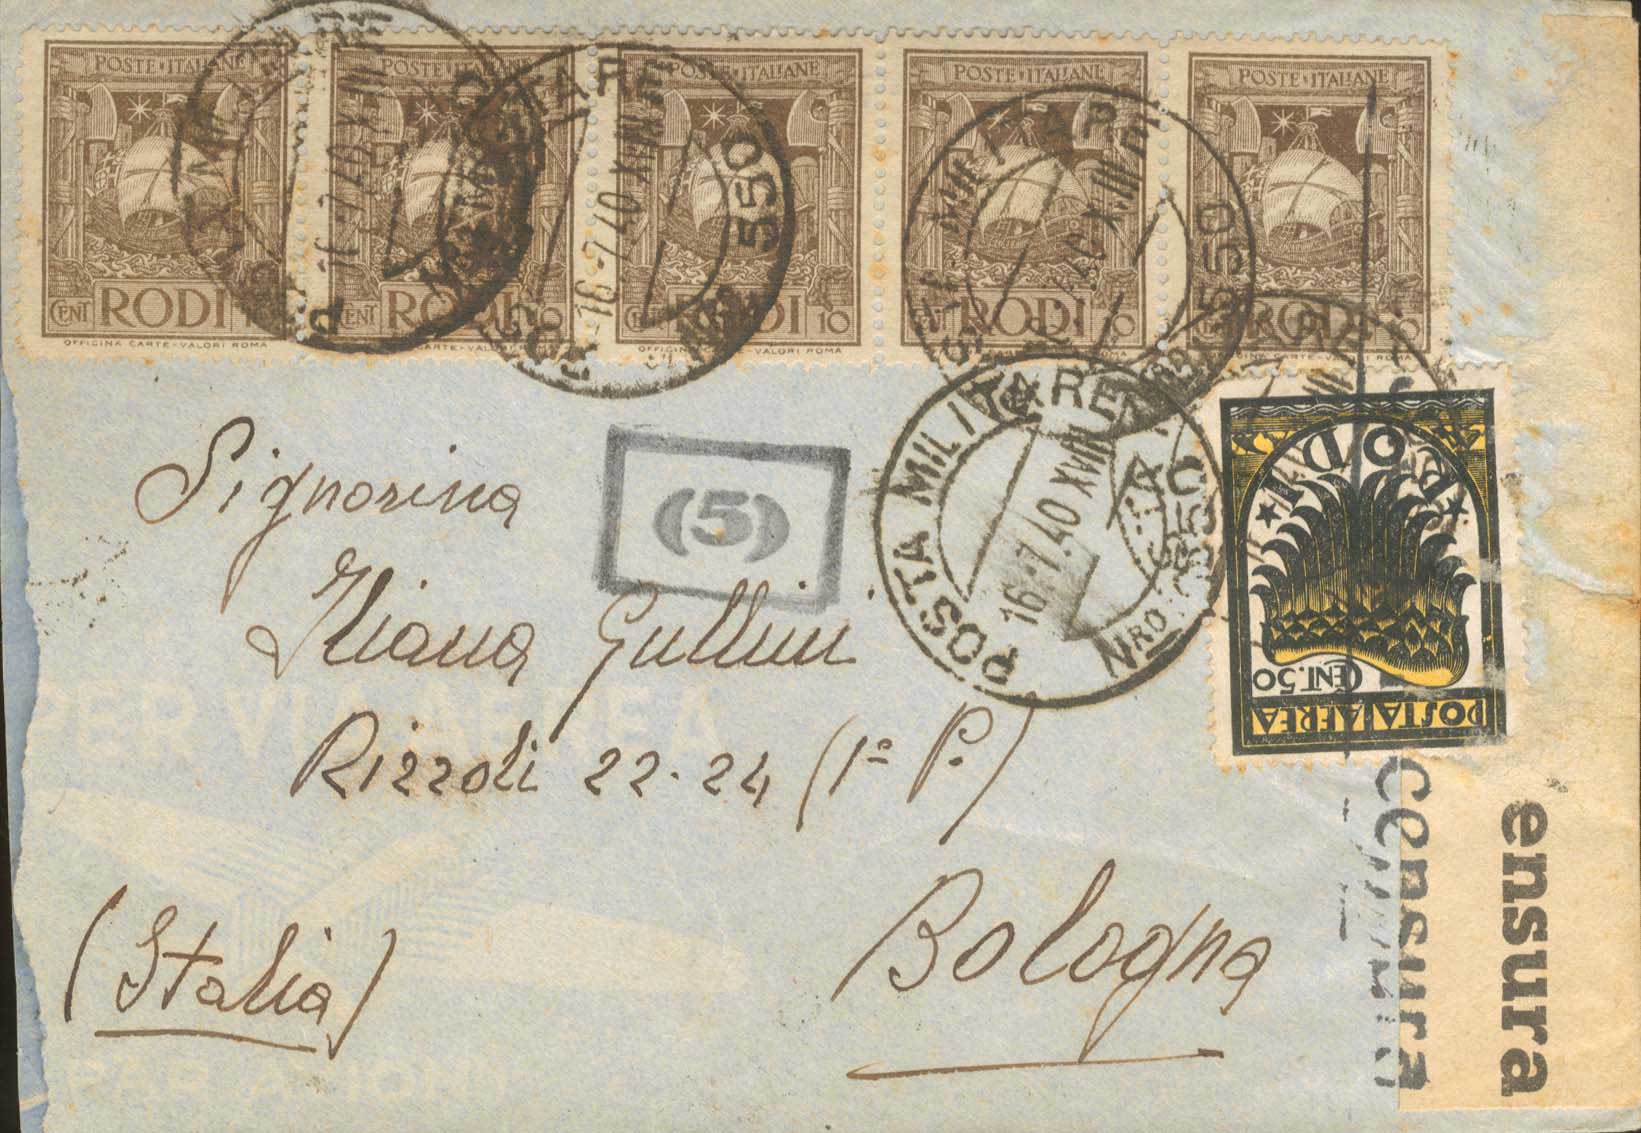 POSTE·ITALIANE POSTE·ITALIANE POSTE·ITALIANE POSTE·ITALIANE POSTE·ITALIANE
CENT RODI 10 CENT RODI 10 CENT RODI 10 CENT RODI 10 CENT RODI 10
OFFICINA CARTE-VALORI ROMA
POSTA MILITARE
16.-7.40 XVIII
NRO. 550
(5)
RODI
CENT.50
POSTA AEREA
Signorina
Iliana Gullini
Rizzoli 22-24 (1º P.)
Bologna
(Italia)
PER VIA AEREA
PAR AVION
censura
ensura